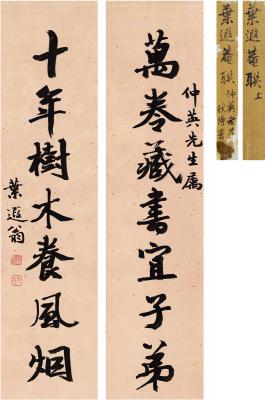 萬卷藏書宜子弟
仲英先生属
十年樹木養風烟
葉遐翁
葉遐菴联上
葉遐菴联